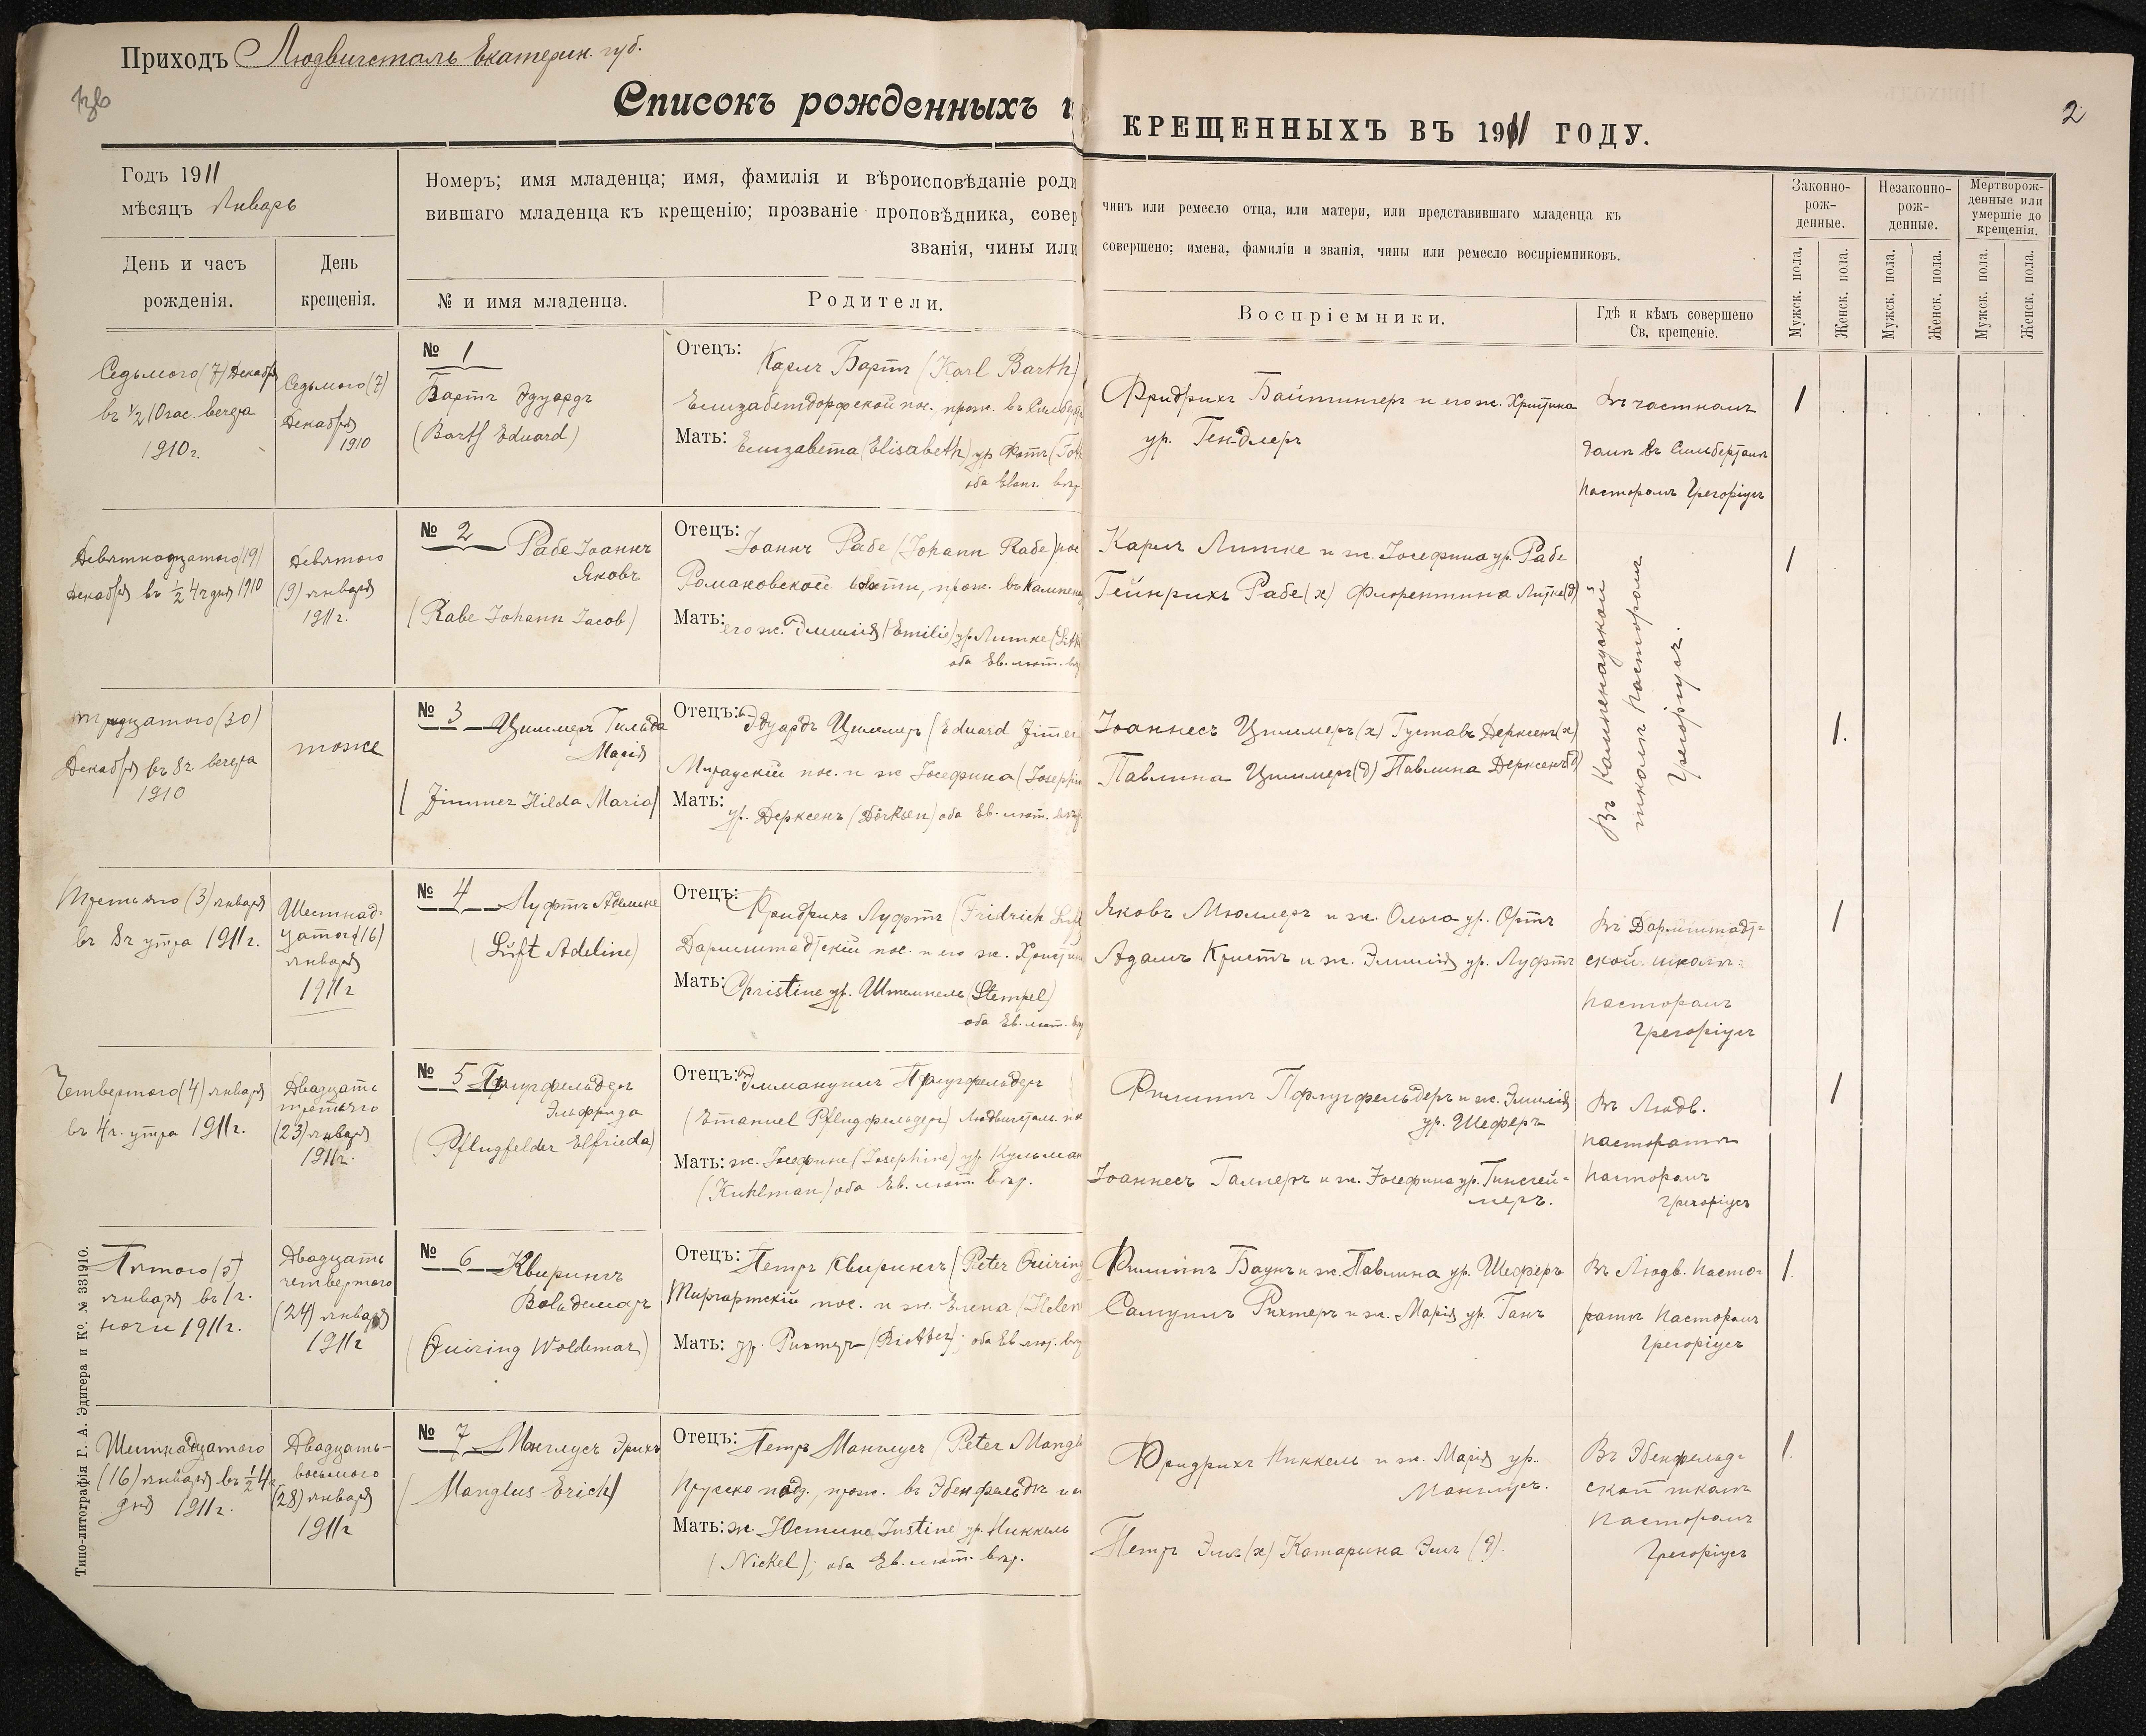 Приходъ Людвигсталь Екатерин. губ.
Списокъ рожденныхъ и
КРЕЩЕННЫХЪ ВЪ 1911 ГОДУ.
2
Годъ 1911
мѣсяцъ Январь
День и часъ
рожденія.
День
крещенія.
Номеръ; имя младенца; имя, фамилія и вѣроисповѣданіе роди
вившаго младенца къ крещенію; прозваніе проповѣдника, совер
званія, чины или
№ и имя младенца.
Родители.
чинъ или ремесло отца, или матери, или представившаго младенца къ
совершено; имена, фамиліи и званія, чины или ремесло воспріемниковъ.
Воспріемники.
Гдѣ и кѣмъ совершено
Св. крещеніе.
Законно-
рож-
денные.
Незаконно-
рож-
денные.
Мертворож-
денные или
умершіе до
крещенія.
Мужск. пола.
Женск. пола.
Мужск. пола.
Женск. пола.
Мужск. пола.
Женск. пола.
Седьмого (7) Декабря
въ ½ 10 час. вечера
1910 г.
Седьмого (7)
Декабря
1910
№ 1
Бартъ Эдуардъ
(Barth Eduard)
Отецъ: Карлъ Бартъ (Karl Barth)
Елизабетдорфской пос., прож. въ
Мать: Елизавета (Elisabeth) ур.
оба Еванг. вѣр
Фридрихъ Байтингеръ и его ж. Христина
ур. Гендлеръ
Въ частномъ
домѣ въ Сильберталѣ
Пасторомъ Грегоріусъ
1
Девятнадцатого (19)
Декабря въ ½ 4 ч дня 1910
Девятого
(9) января
1911 г.
№ 2 Рабе Іоаннъ
Яковъ
(Rabe Johann Jacob)
Отецъ: Іоаннъ Рабе (Johann Rabe) пос
Романовской волости, прож. въ Кампенау
Мать: его ж. Эмилія (Emilie) ур. Литке
оба Ев. лют. вѣр
Карлъ Литке и ж. Іосефина ур. Рабе
Гейнрихъ Рабе (х) Флорентина Литке (д)
Въ Кампенауской
школѣ Пасторомъ
Грегоріусъ.
1
Тридцатого (30)
Декабря въ 8 ч. вечера
1910
тоже
№ 3 Циммеръ Гильда
Марія
(Zimmer Hilda Maria)
Отецъ: Эдуардъ Циммеръ (Eduard Zimer
Мираускій пос. и ж Іосефина (Josephin
Мать: ур. Дерксенъ (Dörksen) оба Ев. лют. вѣр
Іоаннесъ Циммеръ (х) Густавъ Дерксенъ (х)
Павлина Циммеръ (д) Павлина Дерксенъ (д)
1.
Третьяго (3) января
въ 8 ч утра 1911 г.
Шестнад-
цатого (16)
января
1911 г
№ 4 Луфтъ Аделине
(Luft Adeline)
Отецъ: Фридрихъ Луфтъ (Fridrich Luft
Дармштадтскій пос. и его ж. Христина
Мать: Christine ур. Штемпель (Stempel)
оба Ев. лют. вѣр
Яковъ Мюллеръ и ж. Ольга ур. Ортъ
Адамъ Кристъ и ж. Эмилія ур. Луфтъ
Въ Дармштадт-
ской школѣ
Пасторомъ
Грегоріусъ
1
Четвертого (4) января
въ 4 ч. утра 1911 г.
Двадцать
третьяго
(23) января
1911 г.
№ 5 Пфлугфельдеръ
Эльфрида
(Pflugfelder Elfrieda)
Отецъ: Эммануилъ Пфлугфельдеръ
(Emanuel Pflugфельдеръ) Людвигсталь. по
Мать: ж. Іосефине (Josephine) ур. Кульман
(Kuhlman) оба Ев. лют. вѣр.
Филиппъ Пфлугфельдеръ и ж. Эмилія
ур. Шеферъ
Іоаннесъ Галлеръ и ж. Іосефина ур.
Въ Людв.
пасторатѣ
Пасторомъ
Грегоріусъ
1
Пятого (5)
января въ 1 ч.
ночи 1911 г.
Двадцать
четвертого
(24) января
1911 г
№ 6 Квирингъ
Вольдемаръ
(Quiring Woldemar)
Отецъ: Петръ Квирингъ (Peter Quiring
пос. и ж. Елена (Helen
Мать: ур. Рихтеръ (Richter); оба Ев лют. вѣр
Филиппъ Баунъ и ж. Павлина ур. Шеферъ
Самуилъ Рихтеръ и ж. Марія ур. Ганъ
Въ Людв. Пасто-
ратѣ Пасторомъ
Грегоріусъ
1.
Шестнадцатого
(16) января въ ½ 4 ч
дня 1911 г.
Двадцать-
восьмого
(28) января
1911 г
№ 7 Манглусъ Эрихъ
(Manglus Erich)
Отецъ: Петръ Манглусъ (Peter Mangl
Прусско подд. прож. въ Эбенфельдѣ и е
Мать: ж. Юстине Justine ур. Никкель
(Nickel); оба Ев. лют. вѣр.
Фридрихъ Никкель и ж. Марія ур.
Манглусъ.
Петръ (х) Катарина (д).
Въ Эбенфельд-
ской школѣ
Пасторомъ
Грегоріусъ
1.
Типо-литографія Г. А. Эдигера и К°. № 331910.